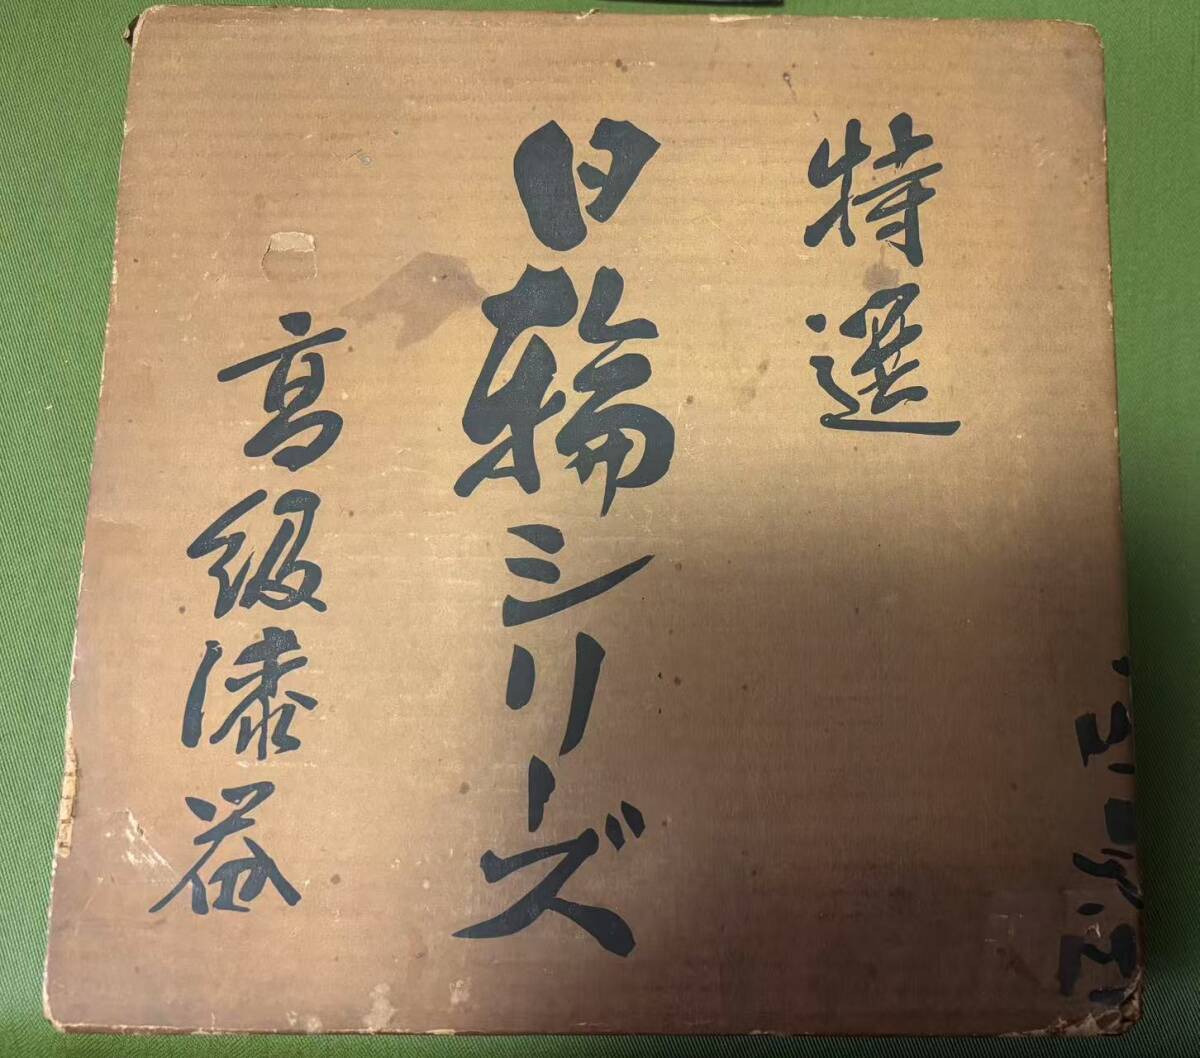 特選
日輪シリーズ
高級漆器